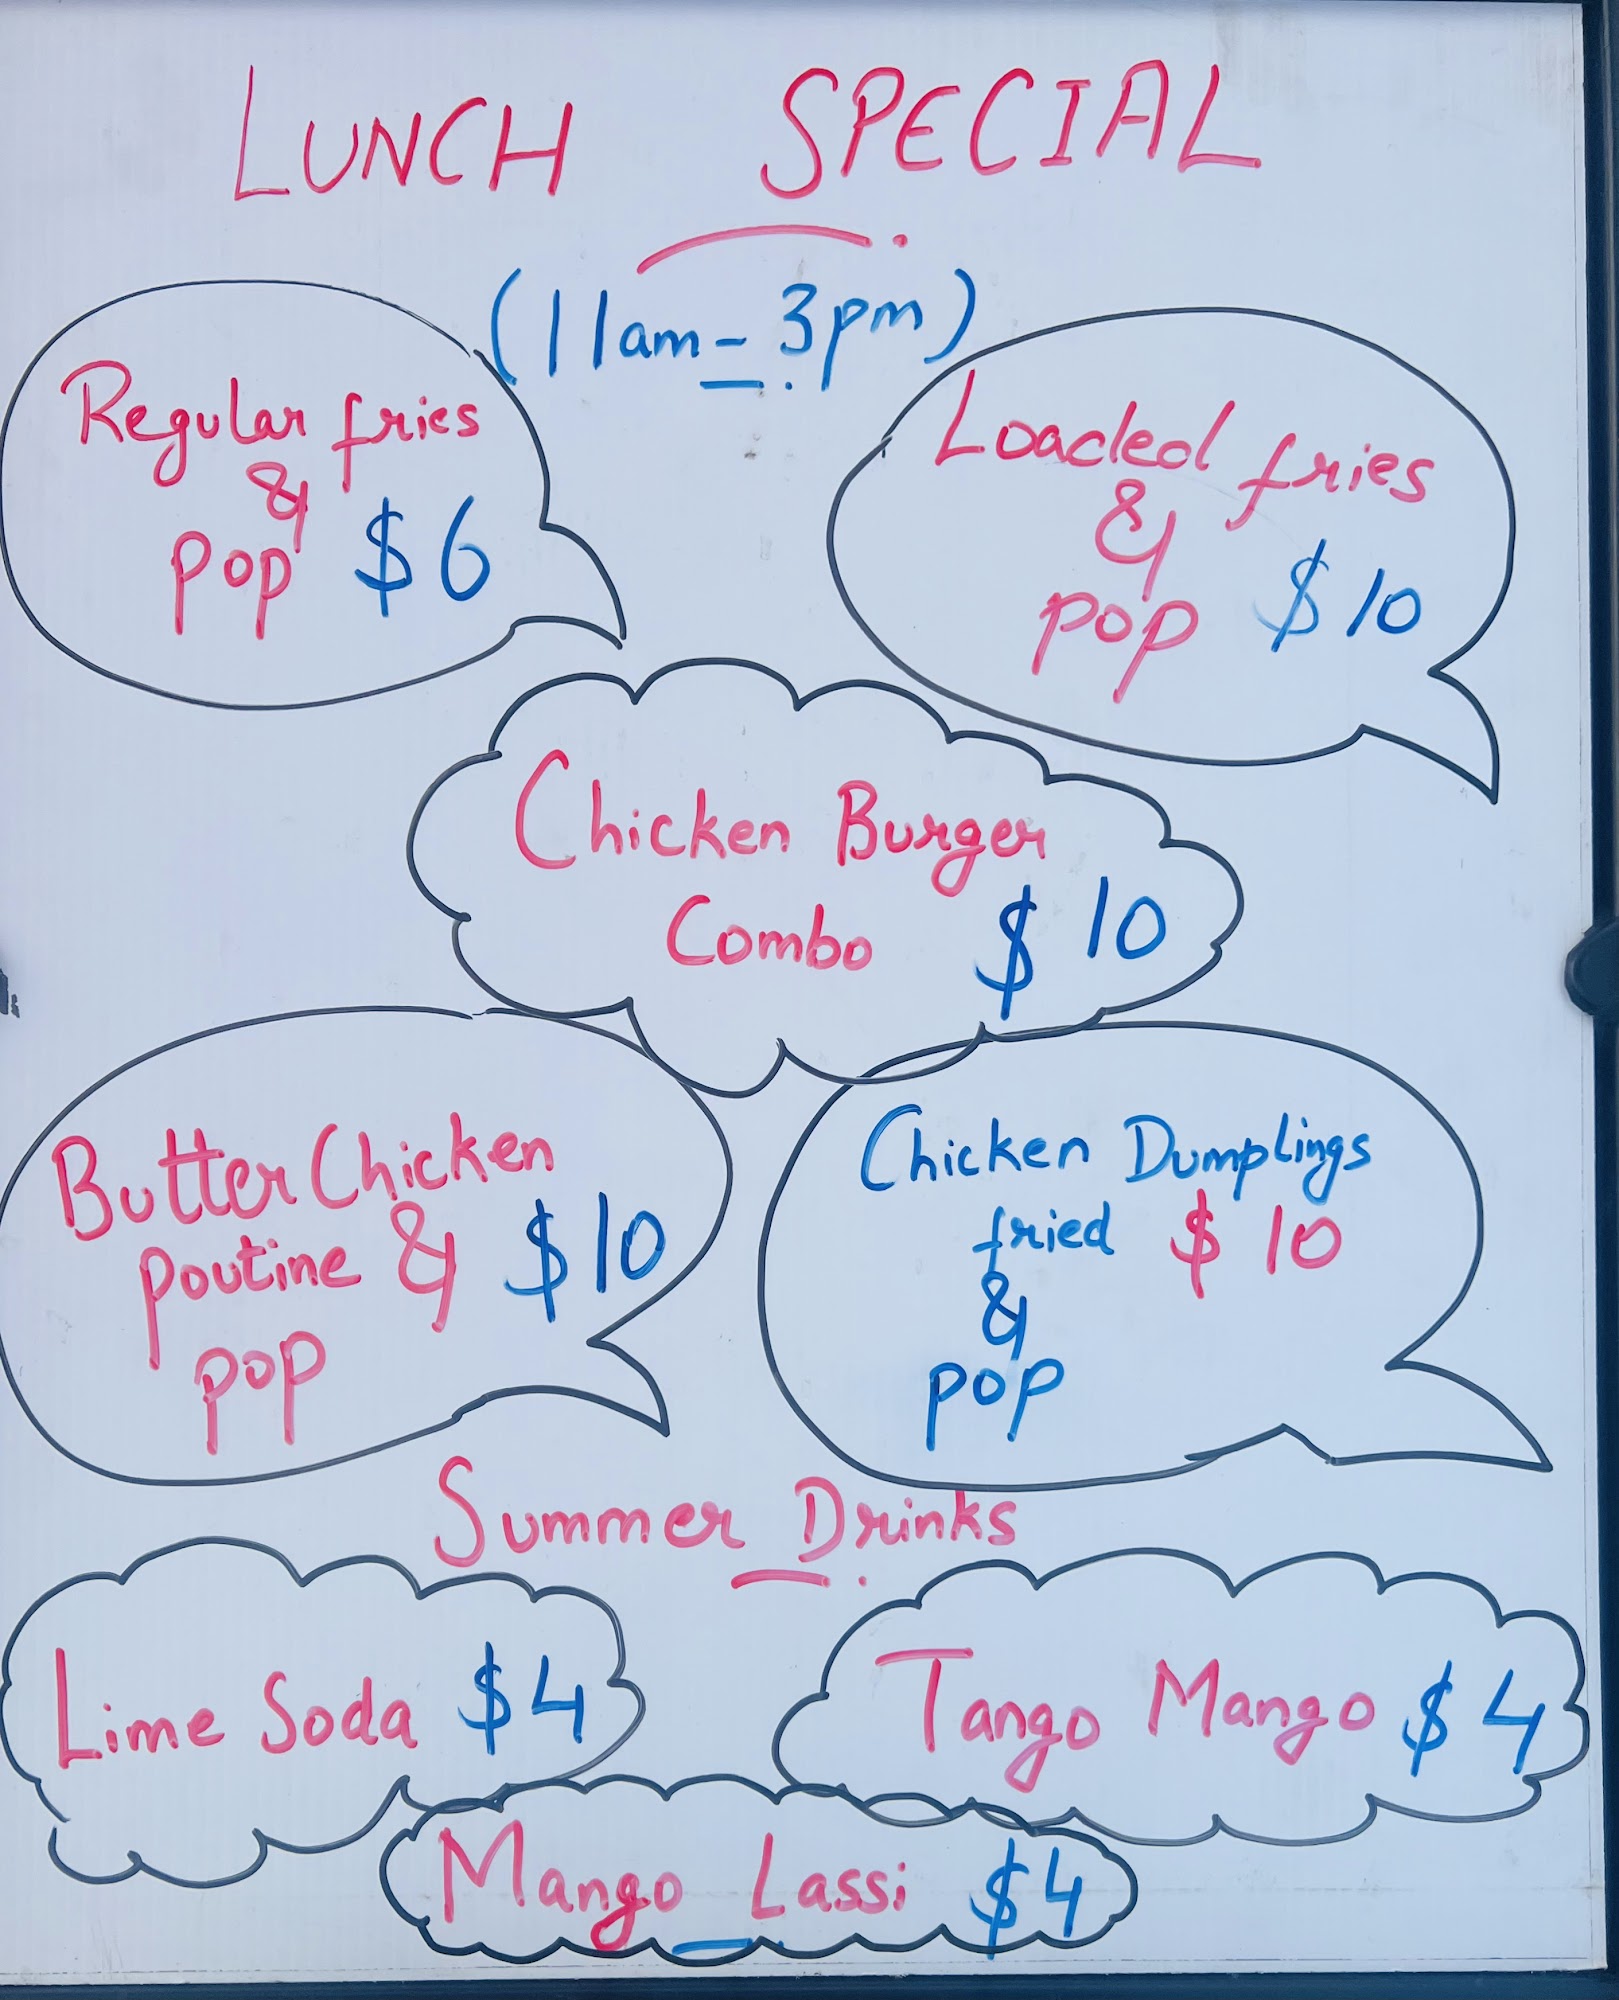 LUNCH SPECIAL
(11am - 3pm)
Regular fries
&
pop $6
Loaded fries
&
pop $10
Chicken Burger
Combo $10
Butter Chicken
poutine & $10
pop
Chicken Dumplings
fried $10
&
pop
Summer Drinks
Lime Soda $4
Tango Mango $4
Mango Lassi $4